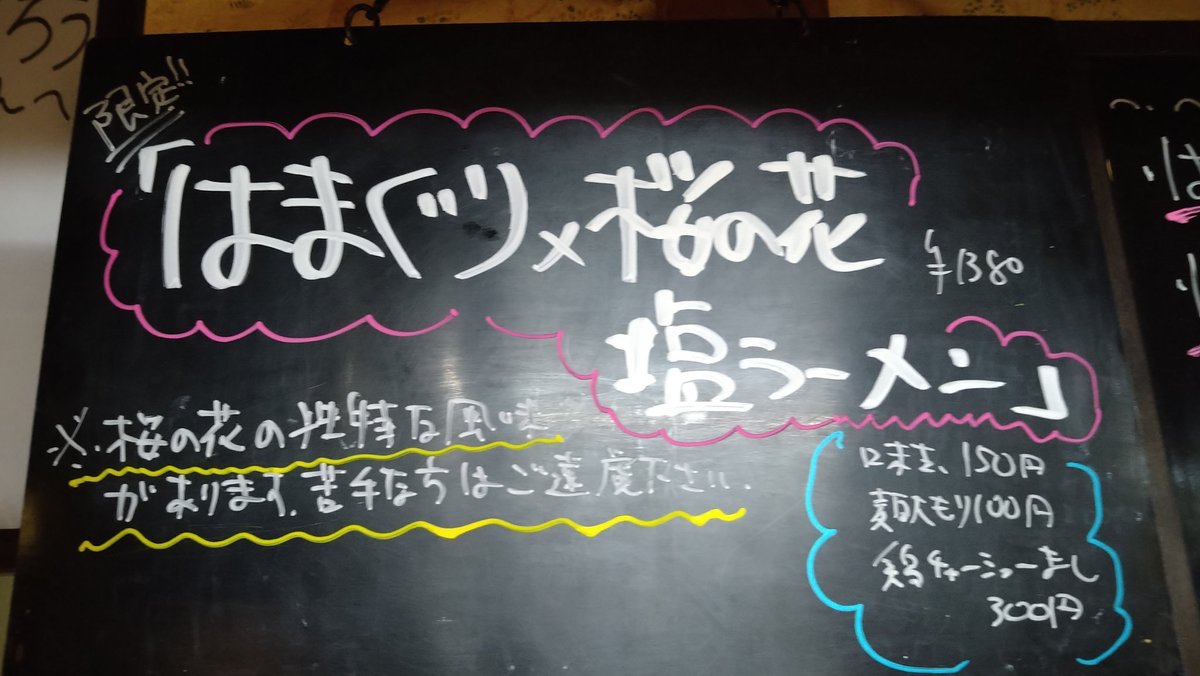 限定!!
「はまぐり×桜の花
¥1380
塩ラーメン」
※桜の花の独特な風味
があります。苦手な方はご遠慮下さい。
味玉 150円
麺大もり100円
鶏チャーシューまし
300円